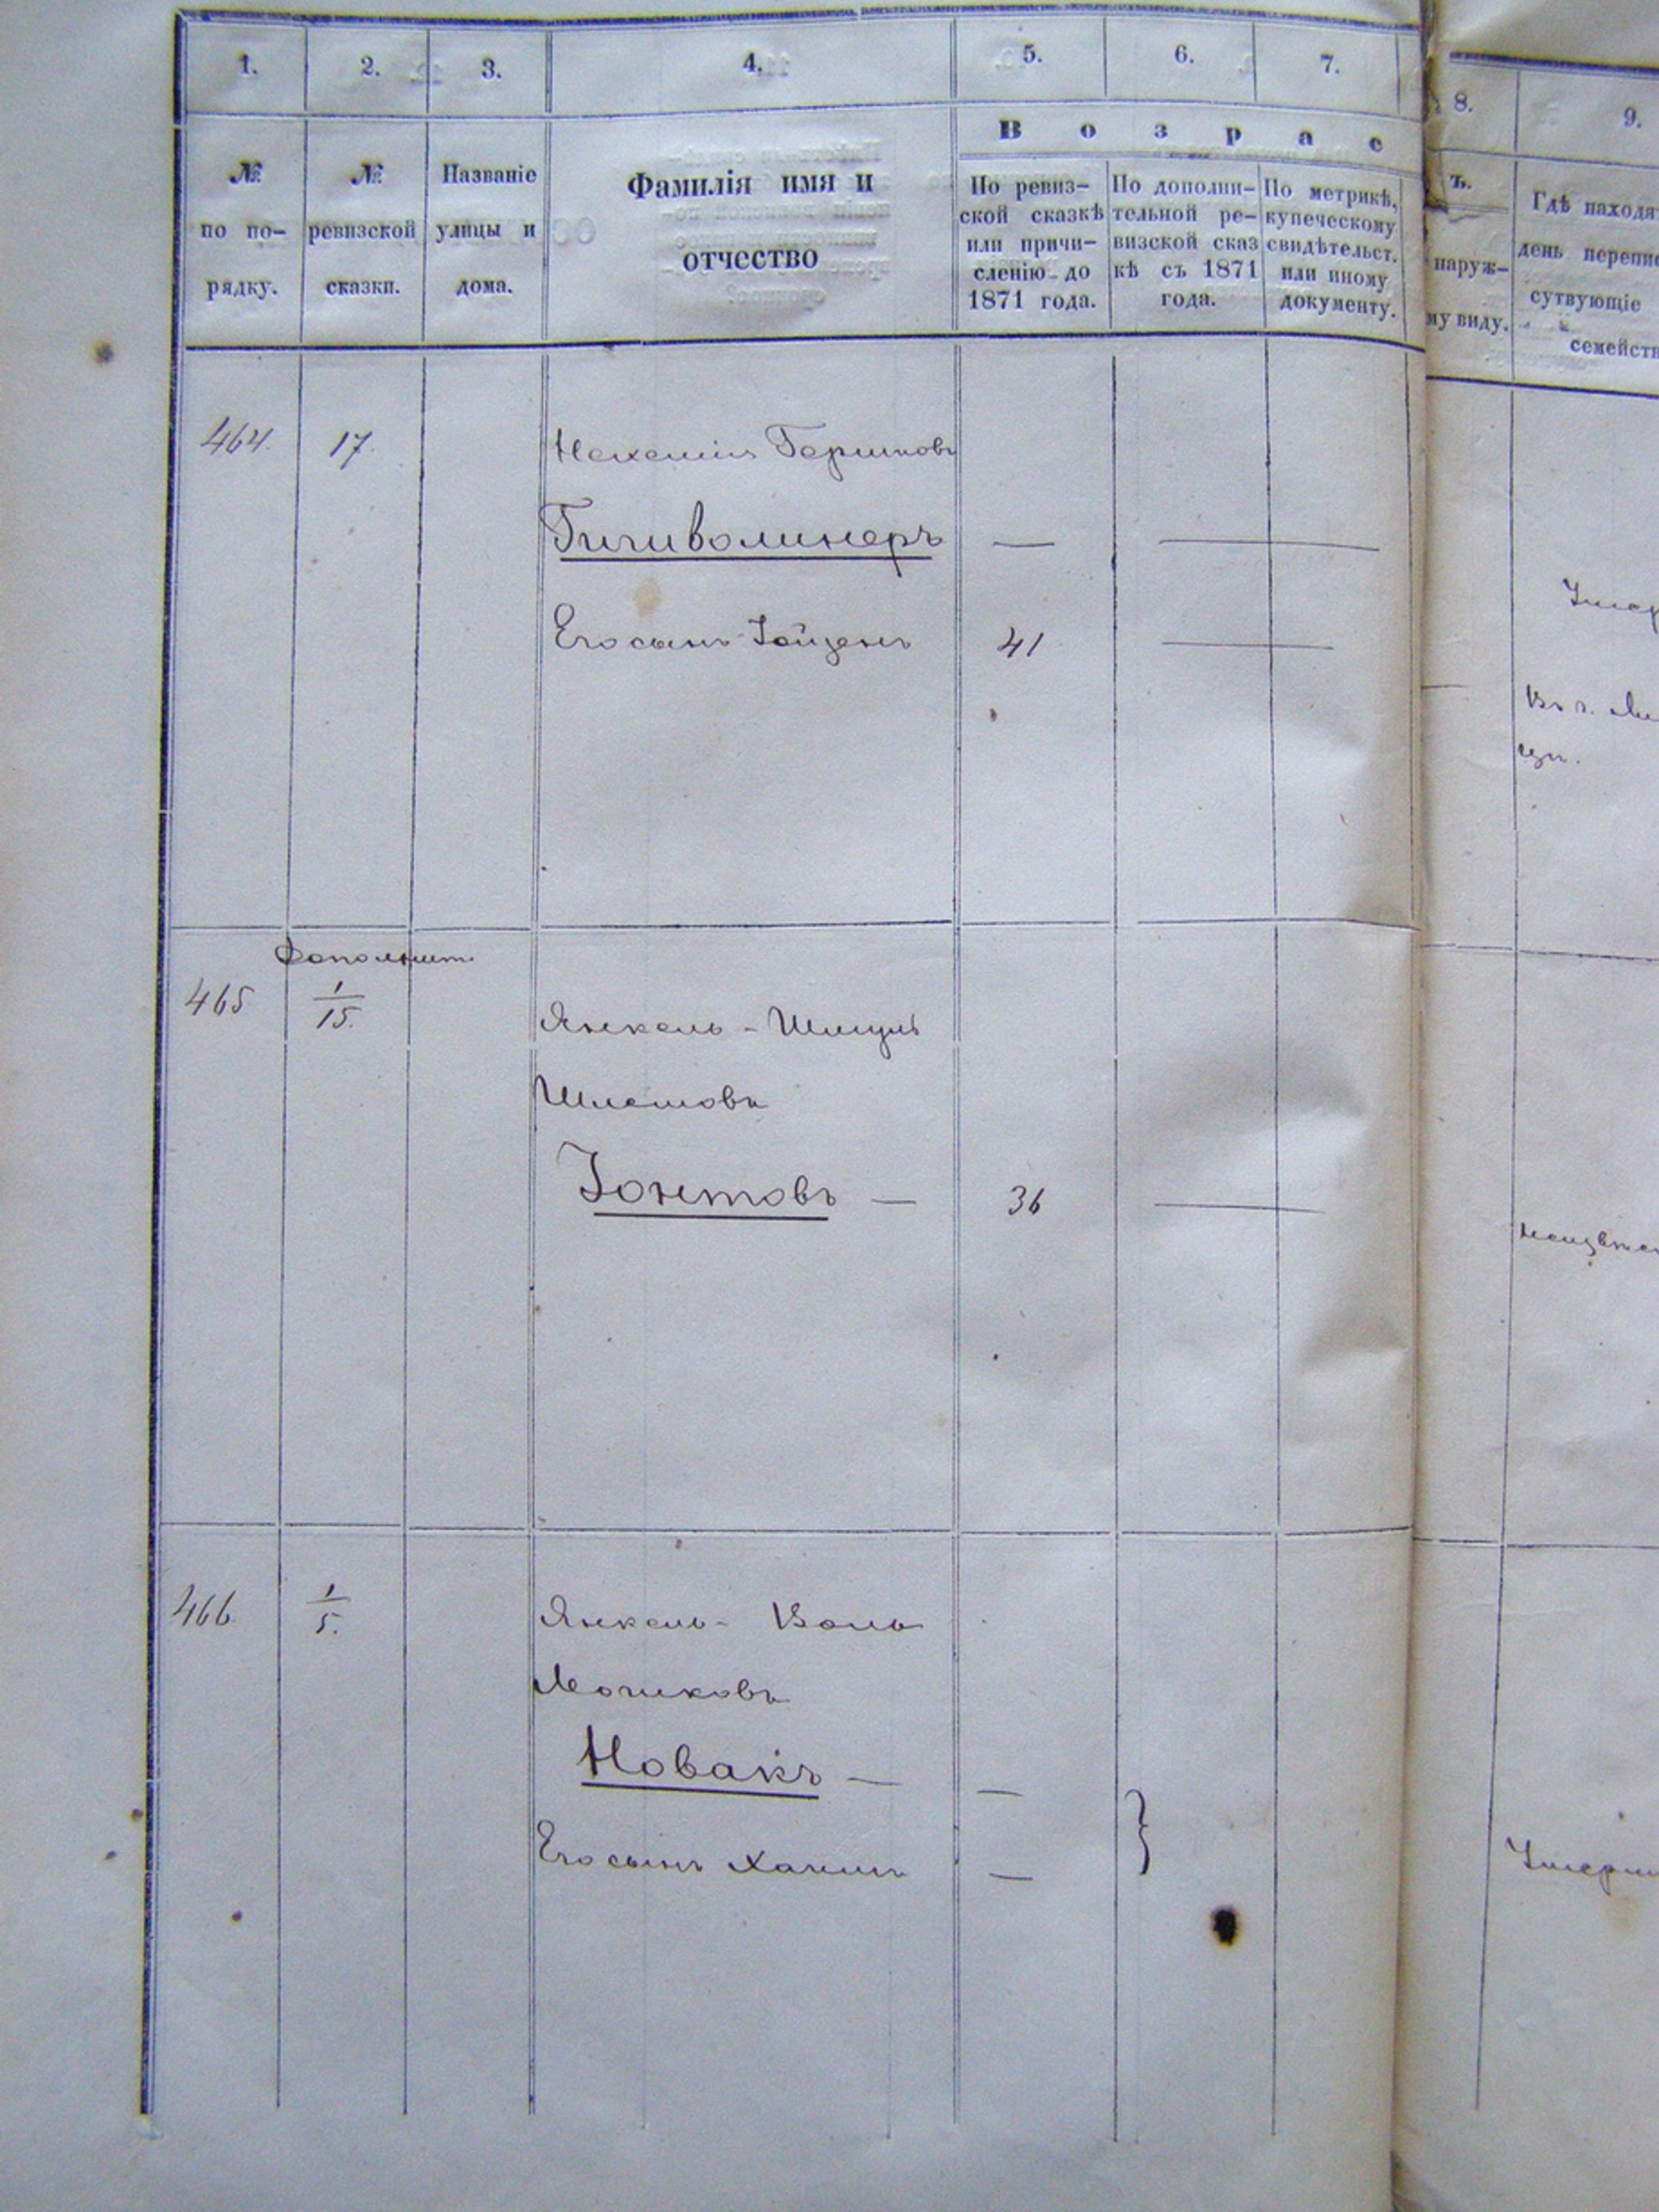 1. 2. 3. 4. 5. 6. 7.
В о з р а с
№ по по- рядку.
№ ревизской сказки.
Названіе улицы и дома.
Фамилія имя и
отчество
По ревиз-
ской сказкѣ
или причи-
сленію до
1871 года.
По дополни-
тельной ре-
визской сказ
кѣ съ 1871
года.
По метрикѣ,
купеческому
свидѣтельст.
или иному
документу.
8. 9.
ъ.
наруж-
му виду.
Гдѣ находя
день перепи
сутвующіе
семейств
464. 17. Нехемія Гершковъ
— —
Его сынъ 41 —
Умер
Въ г.
Дополнит.
465 1/15. Янкель-Шмуль
Шлемовъ
Іонтовъ — 36 —
неизвѣс
466. 1/5. Янкель-Воль
Мошковъ
Новакъ — — }
Его сынъ Хаимъ —
Умерли